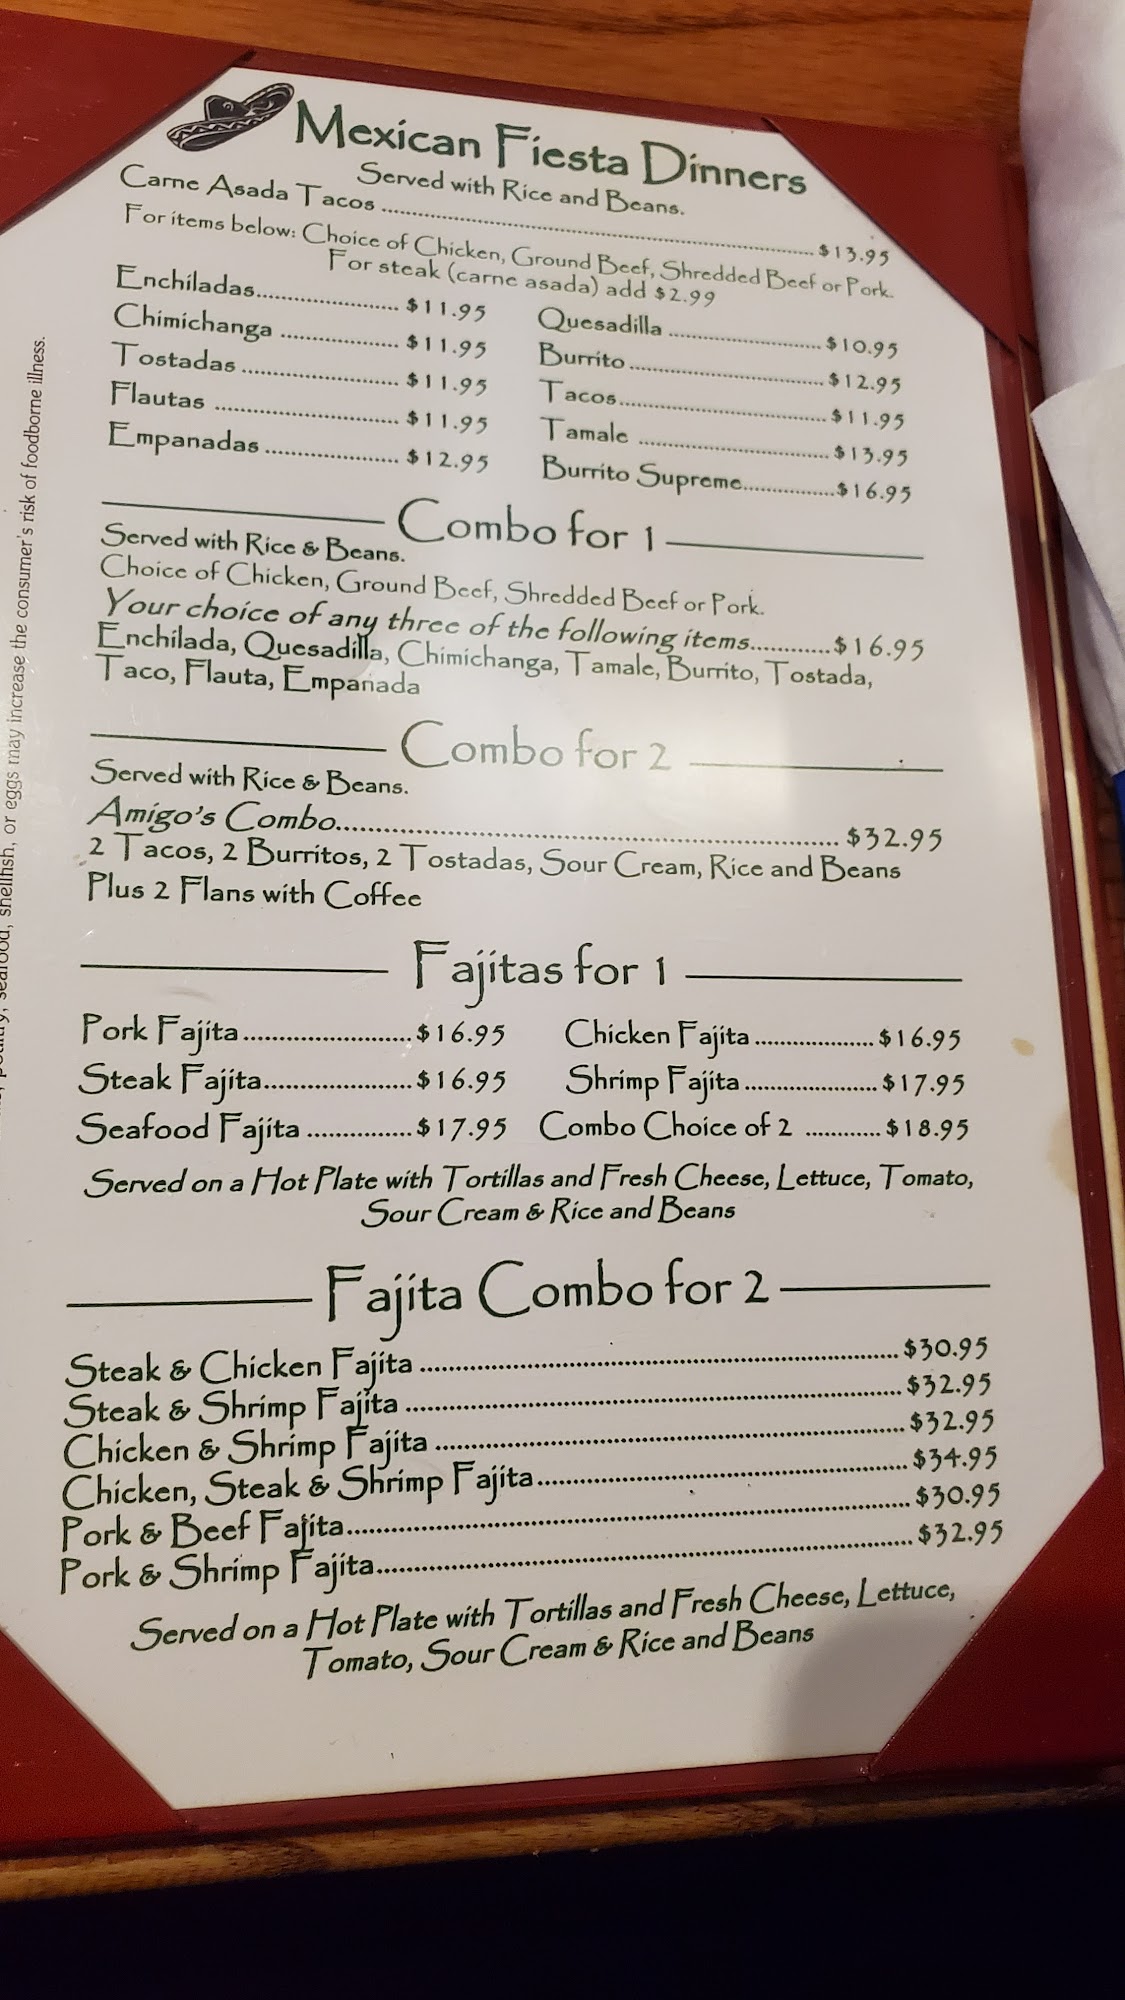 Mexican Fiesta Dinners
Served with Rice and Beans.
Carne Asada Tacos ........ $13.95
For items below: Choice of Chicken, Ground Beef, Shredded Beef or Pork.
For steak (carne asada) add $2.99
Enchiladas........ $11.95
Chimichanga ........ $11.95
Tostadas ........ $11.95
Flautas ........ $11.95
Empanadas ........ $12.95
Quesadilla ........ $10.95
Burrito ........ $12.95
Tacos........ $11.95
Tamale ........ $13.95
Burrito Supreme........ $16.95
Combo for 1
Served with Rice & Beans.
Choice of Chicken, Ground Beef, Shredded Beef or Pork.
Your choice of any three of the following items........ $16.95
Enchilada, Quesadilla, Chimichanga, Tamale, Burrito, Tostada,
Taco, Flauta, Empanada
Combo for 2
Served with Rice & Beans.
Amigo's Combo........ $32.95
2 Tacos, 2 Burritos, 2 Tostadas, Sour Cream, Rice and Beans
Plus 2 Flans with Coffee
Fajitas for 1
Pork Fajita ........ $16.95
Steak Fajita........ $16.95
Seafood Fajita ........ $17.95
Chicken Fajita ........ $16.95
Shrimp Fajita ........ $17.95
Combo Choice of 2 ........ $18.95
Served on a Hot Plate with Tortillas and Fresh Cheese, Lettuce, Tomato,
Sour Cream & Rice and Beans
Fajita Combo for 2
Steak & Chicken Fajita ........ $30.95
Steak & Shrimp Fajita ........ $32.95
Chicken & Shrimp Fajita ........ $32.95
Chicken, Steak & Shrimp Fajita........ $34.95
Pork & Beef Fajita........ $30.95
Pork & Shrimp Fajita........ $32.95
Served on a Hot Plate with Tortillas and Fresh Cheese, Lettuce,
Tomato, Sour Cream & Rice and Beans
seafood, shellfish, or eggs may increase the consumer's risk of foodborne illness.